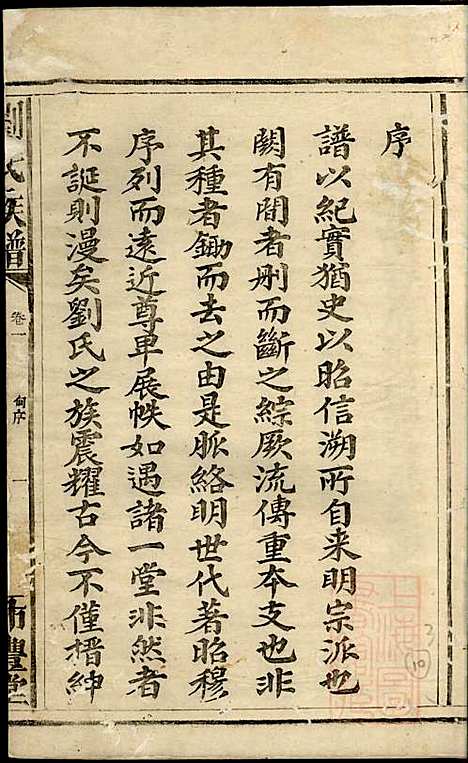 序
譜以紀實猶史以昭信溯所自来明宗派也
闕有間者刷而斷之綜厥流傳重本支也非
其種者鋤而去之由是脈絡明世代著昭穆
序列而遠近尊卑展帙如遇諸一堂非然者
不誕則漫矣劉氏之族震耀古今不僅搢紳
劉氏族譜
卷一
序
一
禮堂
10